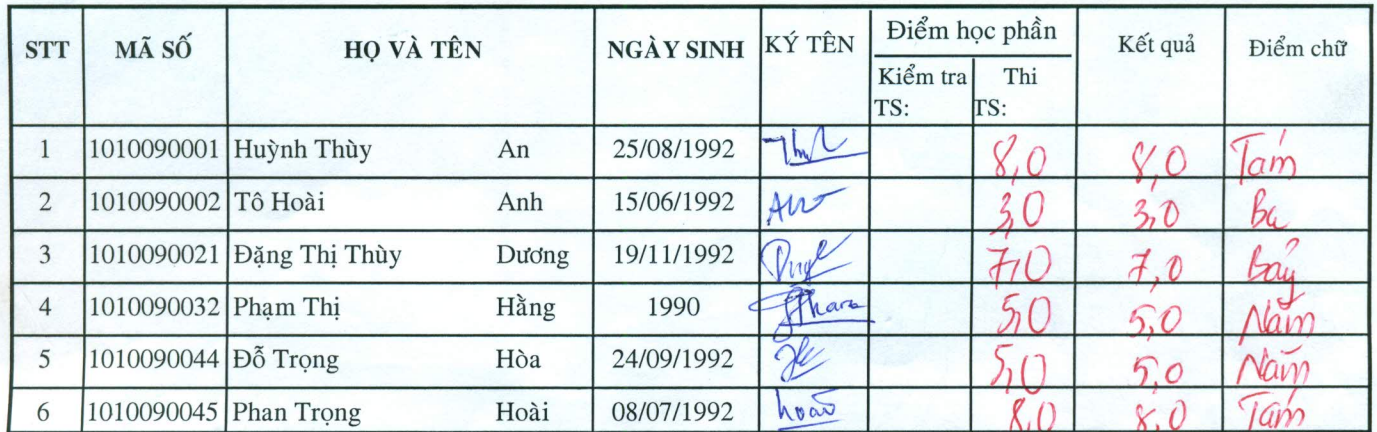 STT MÃ SỐ HỌ VÀ TÊN NGÀY SINH KÝ TÊN Điểm học phần Kết quả Điểm chữ
Kiểm tra Thi
TS: TS:
1 1010090001 Huỳnh Thùy An 25/08/1992 8,0 8,0 Tám
2 1010090002 Tô Hoài Anh 15/06/1992 3,0 3,0 Ba
3 1010090021 Đặng Thị Thùy Dương 19/11/1992 7,0 7,0 Bảy
4 1010090032 Phạm Thị Hằng 1990 5,0 5,0 Năm
5 1010090044 Đỗ Trọng Hòa 24/09/1992 5,0 5,0 Năm
6 1010090045 Phan Trọng Hoài 08/07/1992 8,0 8,0 Tám